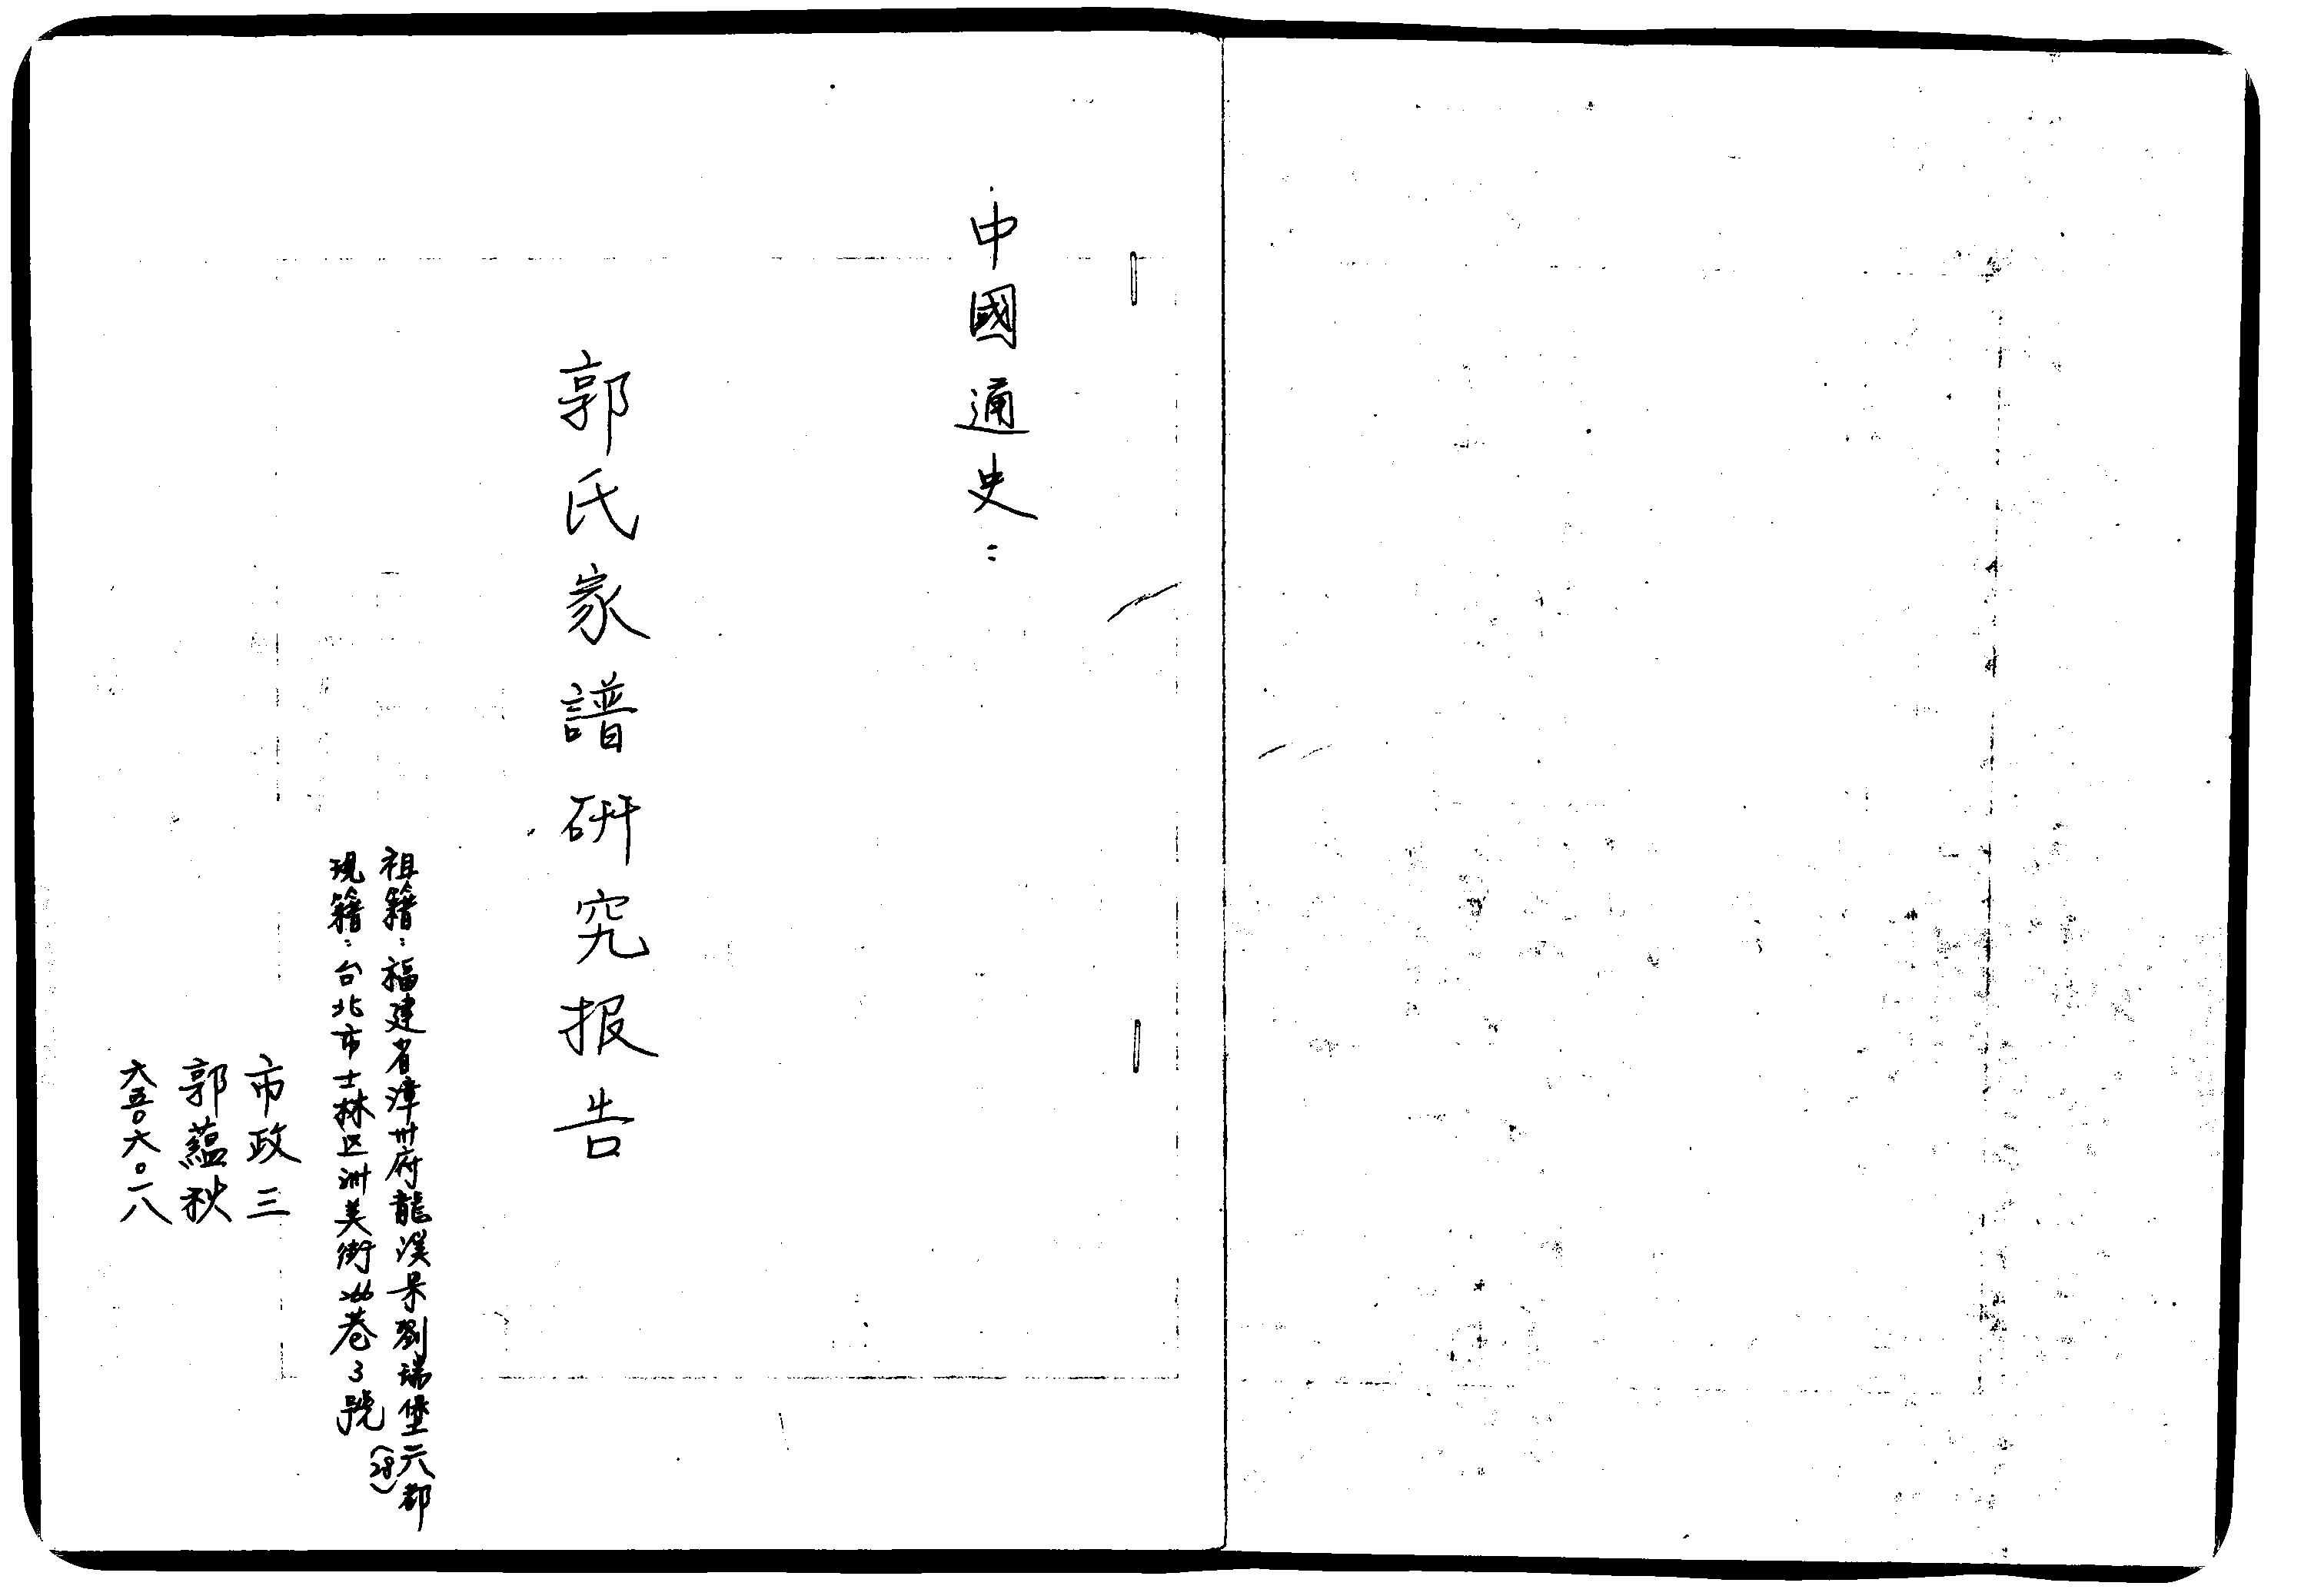 中國通史：
郭氏家譜研究报告
祖籍：福建省漳州府龍溪县劉瑞堡六都
現籍：台北市士林区洲美街266巷3號(28)
市政三
郭蘊秋
六五〇六〇一八